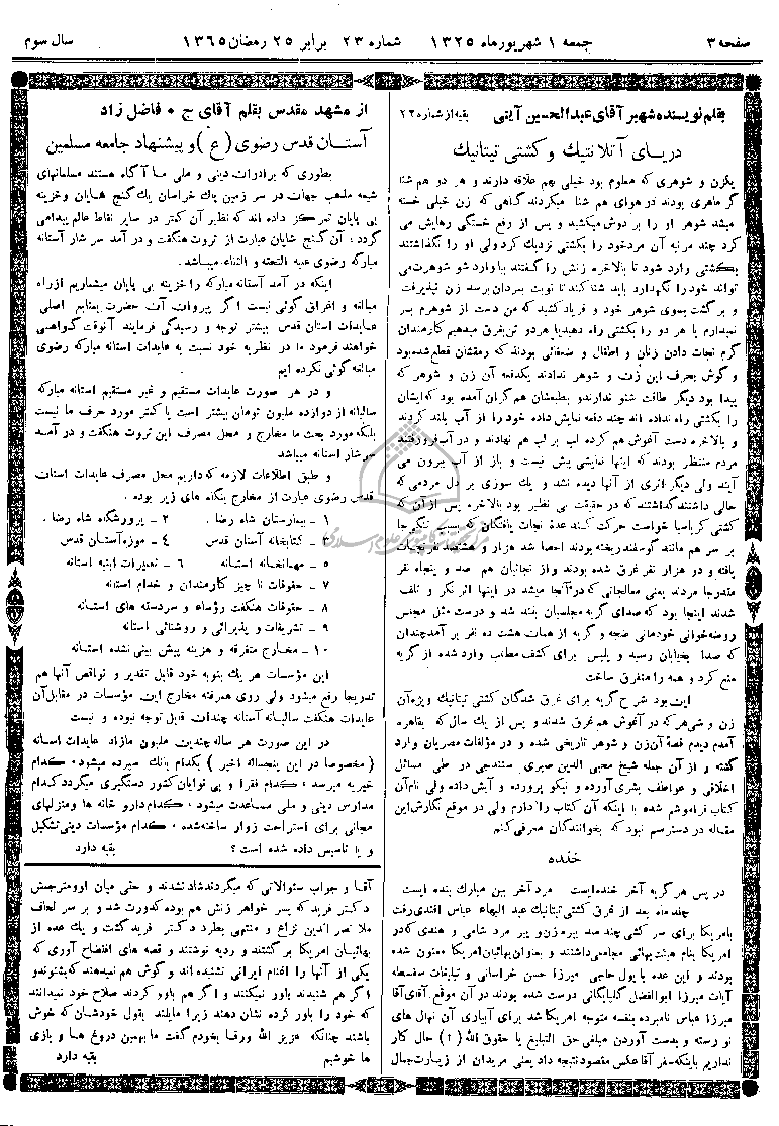 صفحه ۳
جمعه ۱ شهریورماه ۱۳۲۵ شماره ۲۳ برابر ۲۵ رمضان ۱۳۶۵
سال سوم
بقلم نویسنده شهیر آقای عبدالحسین آیتی بقیه از شماره ۲۲
دریای آتلانتیك و کشتی تیتانیك
یکزن و شوهری که معلوم بود خیلی بهم علاقه دارند و هر دو هم شنا
گر ماهری بودند در هوای هم شنا میکردند گاهی که زن خیلی خسته
میشد شوهر او را بر دوش میکشید و پس از رفع خستگی رهایش می
کرد چند مرتبه آن مرد خود را بکشتی نزدیك کرد ولی او را نگذاشتند
بکشتی وارد شود تا بالاخره زنش را گفتند بیا وارد شو شوهرت می
تواند خود را نگهدارد باید شنا کند تا نوبت بمردان برسد زن نپذیرفت
و برگشت بسوی شوهر خود و فریاد کشید که من دست از شوهرم بر
نمیدارم یا هر دو را بکشتی راه دهید یا هر دو تن بغرق میدهیم کارمندان
گرم نجات دادن زنان و اطفال و ضعفائی بودند که رمقشان قطع شده بود
و گوش بحرف این زن و شوهر ندادند یکدفعه آن زن و شوهر که
پیدا بود دیگر طاقت شنو ندارند و بطبعشان هم گران آمده بود که ایشان
را بکشتی راه نداده اند چند دفعه نمایش داده خود را از آب بلند کردند
و بالاخره دست آغوش هم کرده لب بر لب هم نهادند و در آب فرو رفتند
مردم منتظر بودند که اینها نمایشی بیش نیست و باز از آب بیرون می
آیند ولی دیگر اثری از آنها دیده نشد و یك سوزی بر دل مردمی که
حالی داشتند گذاشتند که در حقیقت بی نظیر بود بالاخره پس از آن که
کشتی کرپاسیا خواست حرکت کند عدهٔ نجات یافتگان که بسبب تنگی جا
بر سر هم مانند گوسفند ریخته بودند احصا شد هزار و هشتصد نفر نجات
یافته و دو هزار نفر غرق شده بودند و از نجاتیان هم صد و پنجاه نفر
متدرجا مردند یعنی معالجاتی که در آنجا میشد در اینها اثر نکرد و تلف
شدند اینجا بود که صدای گریه مجلسیان بلند شد و درست مثل مجلس
روضه خوانی خودمانی ضجه و گریه از همان هشت ده نفر بر آمد چندان
که صدا بخیابان رسید و پلیس برای کشف مطلب وارد شده از گریه
منع کرد و همه را متفرق ساخت
این بود شرح گریه برای غرق شدگان کشتی تیتانیك ویژه آن
زن و شوهر که در آغوش هم غرق شدند و پس از یك سال که بقاهره
آمدم دیدم قصهٔ آن زن و شوهر تاریخی شده و در مؤلفات مصریان وارد
گشته و از آن جمله شیخ محیی الدین صبری سنندجی در طی مسائل
اخلاقی و عواطف بشری آورده و نیکو پرورده و آبش داده ولی نام آن
کتاب فراموشم شده با اینکه آن کتاب را دارم ولی در موقع نگارش این
مقاله در دسترسم نبود که بخوانندگان معرفی کنم
خنده
در پس هر گریه آخر خنده ایست مرد آخر بین مبارك بنده ایست
چند ماه بعد از غرق کشتی تیتانیك عبد البهاء عباس افندی رفت
بامریکا برای سر کشی چند صد پیره زن و پیر مرد شامی و هندی که در
امریکا بنام هیئت بهائی مجامعی داشتند و بعنوان بهائیان امریکا معنون شده
بودند و این عده با پول حاجی میرزا حسن خراسانی و تبلیغات سفسطه
آیات میرزا ابوالفضل گلپایگانی درست شده بودند در آن موقع آقای آقا
میرزا عباس نامبرده بنفسه متوجه امریکا شد برای آبیاری آن نهال های
نو رسته و بدست آوردن مبلغی حق التبلیغ یا حقوق الله (!) حال کار
نداریم باینکه سفر آقا عکس مقصود نتیجه داد یعنی مریدان از زیارت جمال
از مشهد مقدس بقلم آقای ج . فاضل زاد
آستان قدس رضوی (ع) و پیشنهاد جامعه مسلمین
بطوری که برادران دینی و ملی ما آگاه هستند مسلمانهای
شیعه مذهب جهان در سر زمین پاك خراسان یك گنج شایان و خزینه
بی پایان تمرکز داده اند که نظیر آن کمتر در سایر نقاط عالم پیدا می
گردد ، آن گنج شایان عبارت از ثروت هنگفت و در آمد سرشار آستانه
مبارکه رضوی علیه التحیة و الثناء میباشد.
اینکه در آمد آستانه مبارکه را خزینه بی پایان میشماریم از راه
مبالغه و اغراق گوئی نیست اگر پیروان آن حضرت بمنابع اصلی
عایدات استان قدس بیشتر توجه و رسیدگی فرمایند آنوقت گواهی
خواهند فرمود ما در نظریه خود نسبت به عایدات استانه مبارکه رضوی
مبالغه گوئی نکرده ایم
و در هر صورت عایدات مستقیم و غیر مستقیم استانه مبارکه
سالیانه از دوازده ملیون تومان بیشتر است یا کمتر مورد حرف ما نیست
بلکه مورد بحث ما مخارج و محل مصرف این ثروت هنگفت و در آمد
سرشار استانه میباشد
و طبق اطلاعات لازمه که داریم محل مصرف عایدات استان
قدس رضوی عبارت از مخارج بنگاه های زیر بوده .
۱ ـ بیمارستان شاه رضا . ۲ ـ پرورشگاه شاه رضا .
۳ ـ کتابخانه آستان قدس ۴ ـ موزه آستان قدس
۵ ـ مهمانخانه استانه ۶ ـ تعمیرات ابنیه استانه
۷ ـ حقوقات ناچیز کارمندان و خدام استانه
۸ ـ حقوقات هنگفت رؤساء و سردسته های استانه
۹ ـ تشریفات و پذیرائی و روشنائی استانه
۱۰ ـ مخارج متفرقه و هزینه پیش بینی نشده استانه
این مؤسسات هر یك بنوبه خود قابل تقدیر و نواقص آنها هم
تدریجا رفع میشود ولی روی همرفته مخارج این مؤسسات در مقابل آن
عایدات هنگفت سالیانه آستانه چندان قابل توجه نبوده و نیست
در این صورت هر ساله چندین ملیون مازاد عایدات استانه
( مخصوصا در این پنجساله اخیر ) بکدام بانك سپرده میشود ، کدام
خیریه میرسد ، کدام فقرا و بی نوایان کشور دستگیری میگردد کدام
مدارس دینی و ملی مساعدت میشود ، کدام دارو خانه ها و منزلهای
مجانی برای استراحت زوار ساخته شده ، کدام مؤسسات دینی تشکیل
و یا تاسیس داده شده است ؟ بقیه دارد
آقا و جواب سئوالاتی که میگردند شاد نشدند و حتی میان او و مترجمش
دکتر فرید که پسر خواهر زنش هم بوده کدورت شد و بر سر لحاف
ملا نصر الدین نزاع و منتهی بطرد دکتر فرید گشت و یك عده از
بهائیان امریکا بر گشتند و ردیه نوشتند و قصه های افتضاح آوری که
یکی از آنها را اغنام ایرانی نشنیده اند و گوش هم نمیدهند که بشنوند و
اگر هم شنیدند باور نمیکنند و اگر هم باور کردند صلاح خود نمیدانند
که خود را باور کرده نشان دهند زیرا مایلند بقول خودشان که خوش
باشند چنانکه عزیز الله ورقا بخودم گفت ما بهمین دروغ ها و بازی
ها خوشیم بقیه دارد